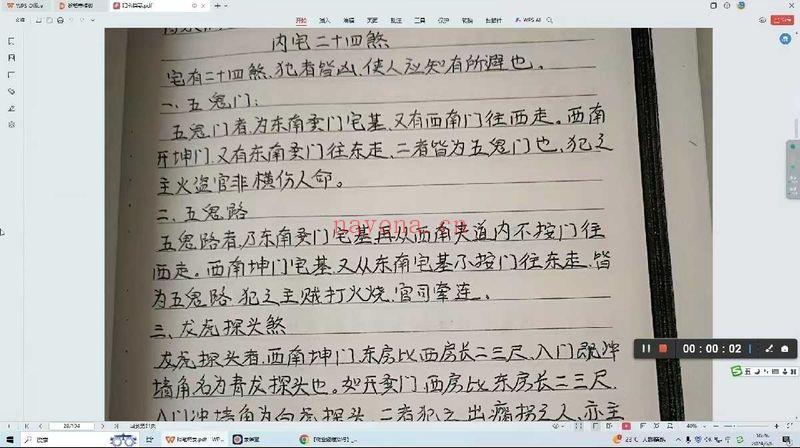 WPS Office
开始
插入
编辑
页面
批注
工具
保护
转换
WPS AI
内宅二十四煞
宅有二十四煞.犯者皆凶.使人应知有所避也。
一.五鬼门:
五鬼门者,为东南巽门宅基.又有西南门往西走。西南
开坤门.又有东南巽门往东走.二者皆为五鬼门也,犯之
主火盗官非横伤人命。
二.五鬼路
nayona.cn
五鬼路者,乃东南巽门宅基再从西南夹道内不按门往
西走。西南坤门宅基.又从东南宅基不按门往东走.皆
为五鬼路.犯之主贼打火烧.官司牵连。
三.龙虎探头煞
龙虎探头者.西南坤门.东房比西房长二三尺.入门既冲
墙角名为青龙探头也。如开巽门.西房比东房长二三尺.
入门冲墙角为白虎探头.二者犯之.出瘸拐之人.亦主
00:00:02
搜索
23°C